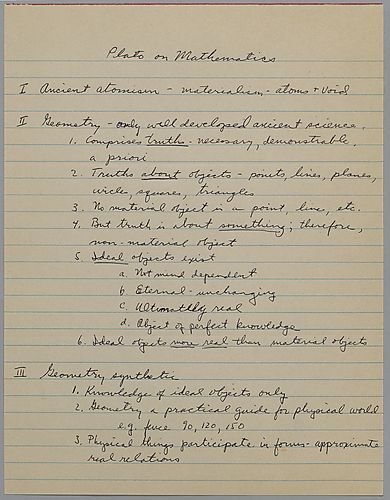 Plato on Mathematics
I Ancient atomism - materialism - atoms + void
II Geometry - only well developed ancient science.
1. Comprises truths - necessary, demonstrable,
a priori
2. Truths about objects - points, lines, planes,
circles, squares, triangles
3. No material object is a point, line, etc.
4. But truth is about something; therefore,
non-material object
5. Ideal objects exist
a. Not mind dependent
b. Eternal - unchanging
c. Ultimately real
d. Object of perfect knowledge
6. Ideal objects more real than material objects
III Geometry synthetic
1. Knowledge of ideal objects only
2. Geometry a practical guide for physical world
e.g. fence 90, 120, 150
3. Physical things participate in forms - approximate
real relations